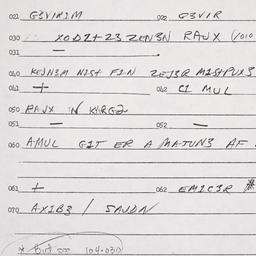 021 G3VIRIM 022 G3VIR
030 XODZ+23 ZEN3N RAJX (/010
031 —
040 KEJN3M NIST FIN ZEJ3R MISTPUX3
041 + 042 CI MUL
050 RAJX N KHRG2
051 — 052 —
060 AMUL GIT ER A MATUN3 AF
061 + 062 EMIC3R #
070 AXIB3 / SAUDN
104.030